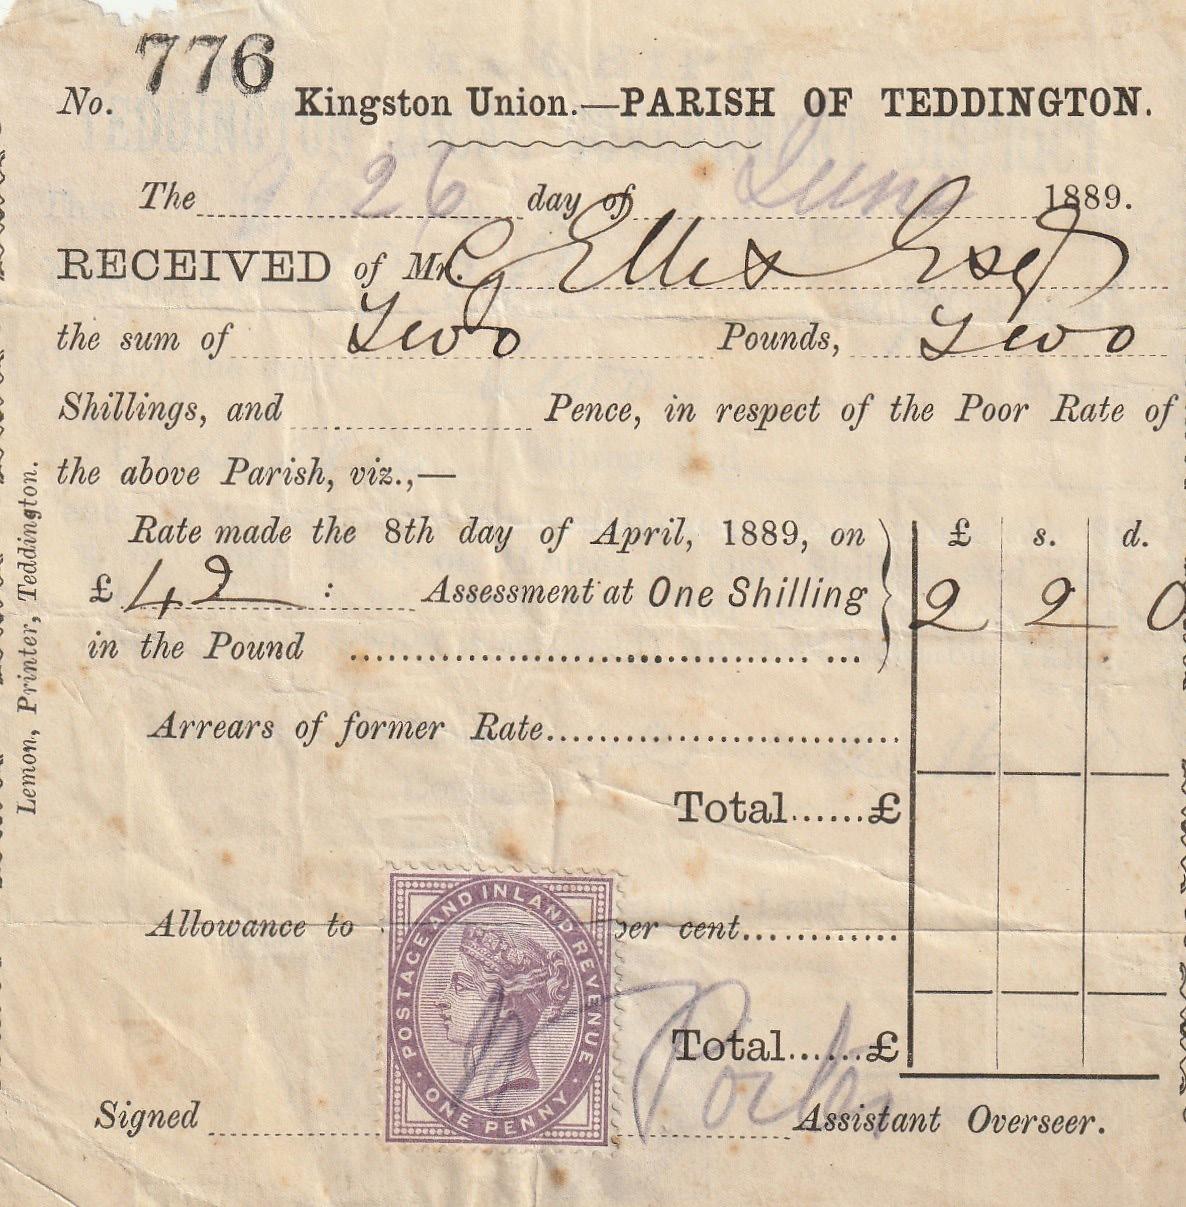 No. 776 Kingston Union.—PARISH OF TEDDINGTON.
The 26 day of June 1889.
RECEIVED of Mr. G Ellis Esqr
the sum of Two Pounds, Two
Shillings, and Pence, in respect of the Poor Rate of
the above Parish, viz.,—
Rate made the 8th day of April, 1889, on £ s. d.
£ 42 : Assessment at One Shilling 2 2 0
in the Pound
Arrears of former Rate
Total......£
Allowance to per cent.
Total......£
Signed Assistant Overseer.
POSTAGE AND INLAND REVENUE
ONE PENNY
Lemon, Printer, Teddington.